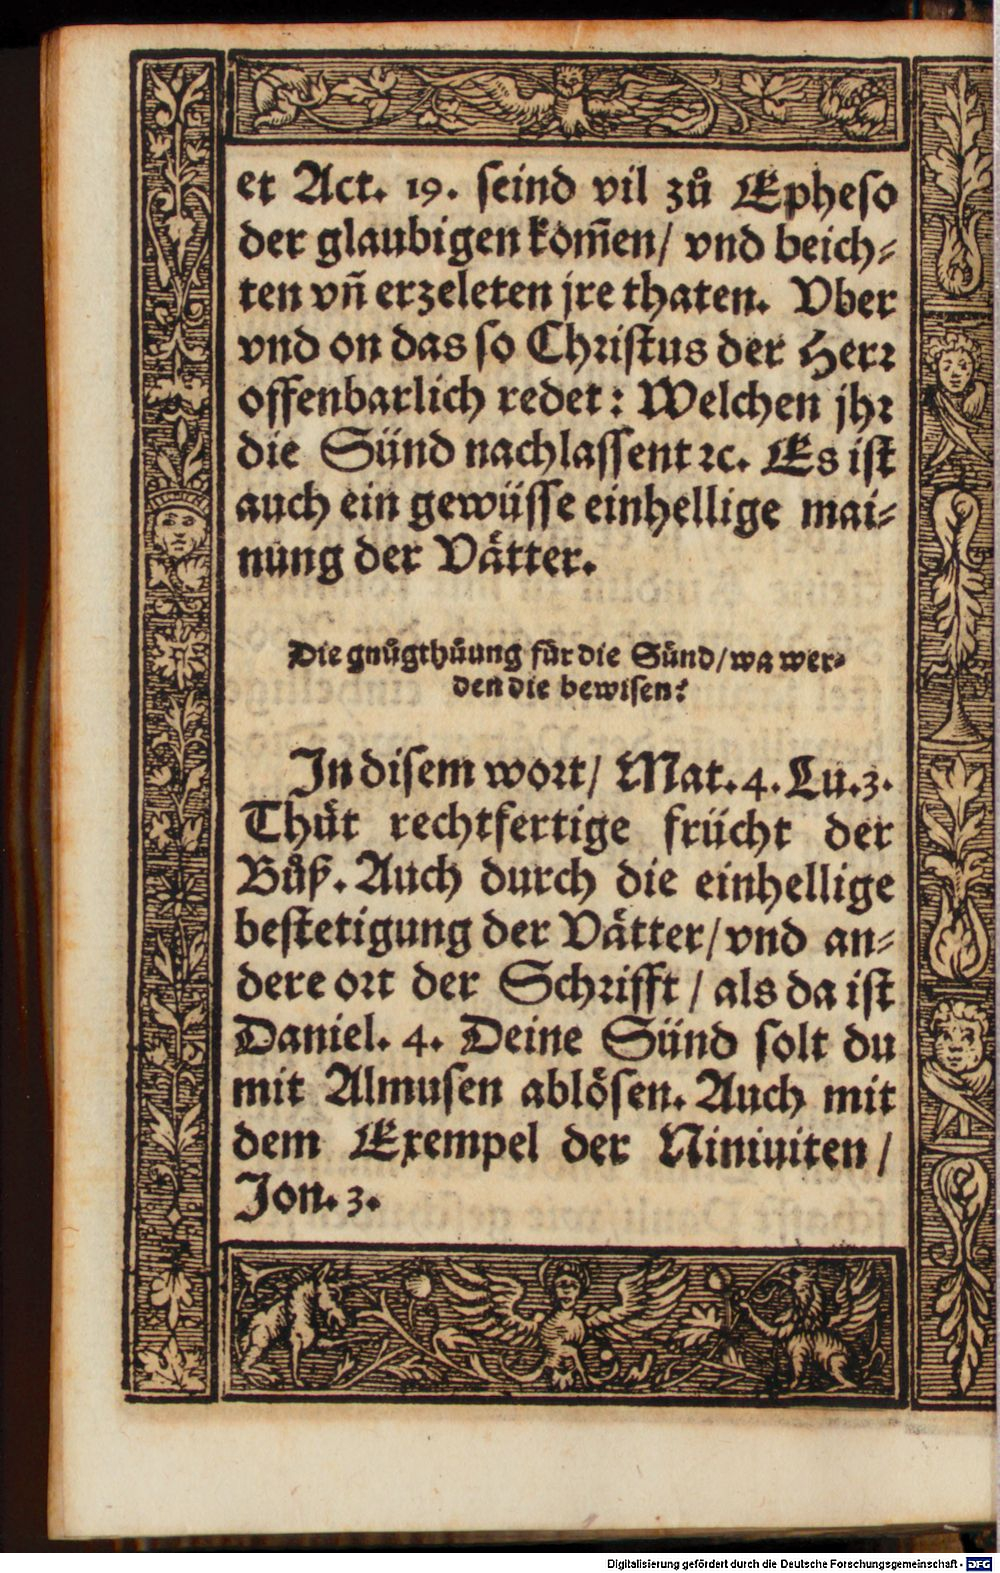 et Act. 19. seind vil zů Epheso
der glaubigen kom̃en/ vnd beich⸗
ten vñ erzeleten jre thaten. Vber
vnd on das so Christus der Herr
offenbarlich redet: Welchen jhr
die Sünd nachlassent ꝛc. Es ist
auch ein gewüsse einhellige mai⸗
nung der Vaͤtter.
Die gnůgthůung für die Sünd/ wa wer⸗
den die bewisen?
In disem wort/ Mat. 4. Lu. 3.
Thůt rechtfertige frücht der
Bůß. Auch durch die einhellige
bestetigung der Vaͤtter/ vnd an⸗
dere ort der Schrifft/ als da ist
Daniel. 4. Deine Sünd solt du
mit Almusen abloͤsen. Auch mit
dem Exempel der Niniuiten/
Jon. 3.
Digitalisierung gefördert durch die Deutsche Forschungsgemeinschaft - DFG